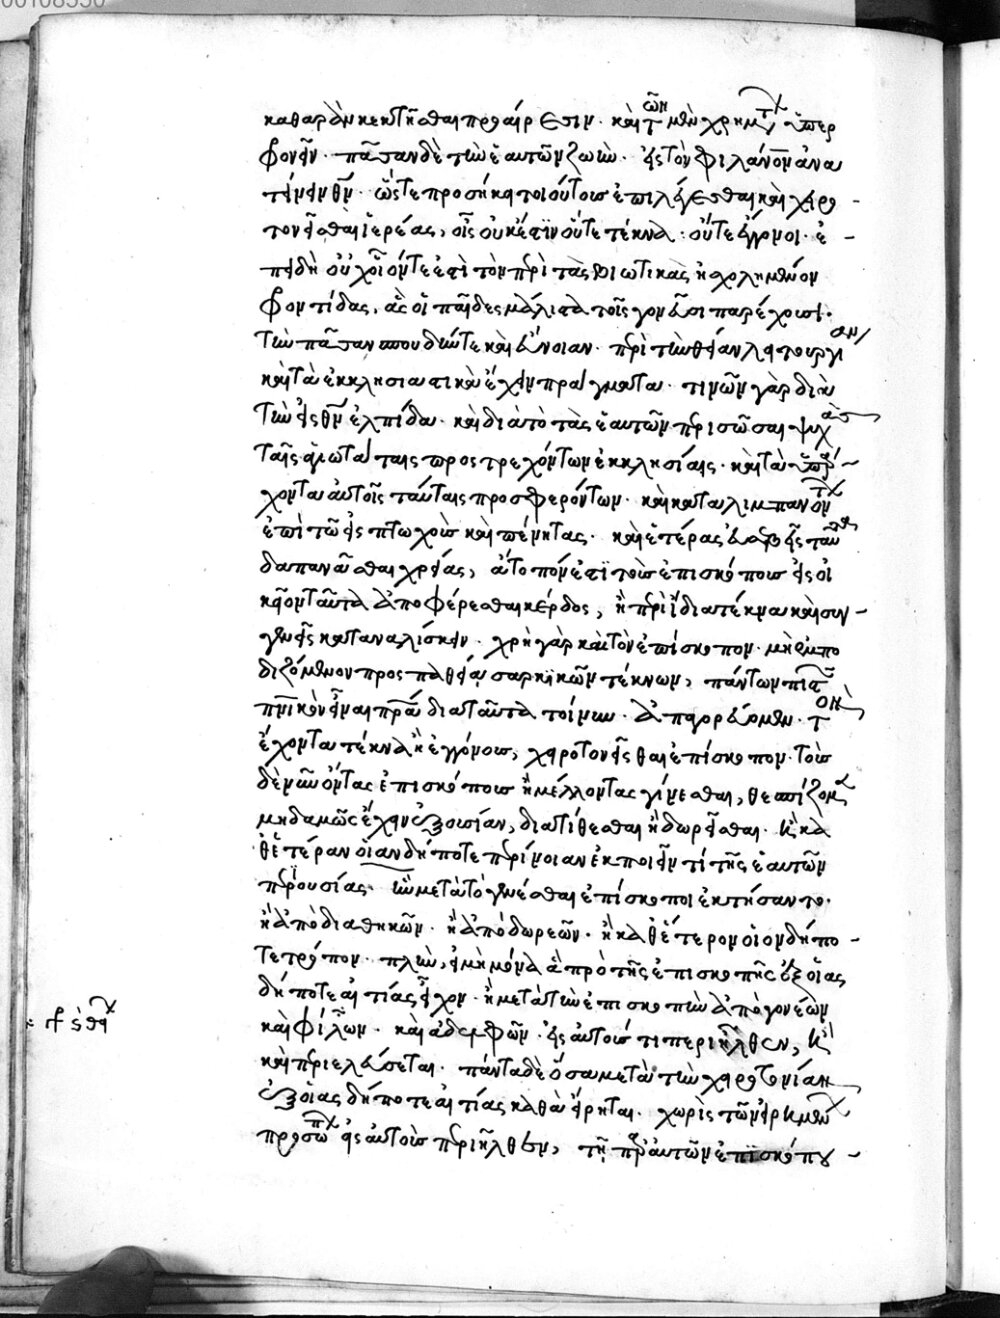 00108550
καθαρὰν κεκτῆσθαι προαίρεσιν· καὶ τῶν μὲν χρημάτων ὑπερ
φρονεῖν· πᾶσαν δὲ τὴν ἑαυτῶν ζωὴν· εἰς τὸν φιλάνθρωπον ἀνα
τείνειν θεόν· ὥστε προσήκει τοιούτους ἐπιλέγεσθαι καὶ χειρο
τονεῖσθαι ἱερέας, οἷς οὐκ ἔστιν οὔτε τέκνα· οὔτε ἔγγονοι· ἐ
πειδὴ οὐχ οἷόν τέ ἐστι τὸν περὶ τὰς βιωτικὰς ἠσχολημένον
φροντίδας, ἃς οἱ παῖδες μάλιστα τοῖς γονεῦσι παρέχουσι·
τὴν πᾶσαν σπουδήν τε καὶ εὔνοιαν· περὶ τὴν θείαν λειτουργίαν
καὶ τὰ ἐκκλησιαστικὰ ἔχειν πράγματα· τινῶν γὰρ διὰ
τὴν εἰς θεὸν ἐλπίδα· καὶ διὰ τὸ τὰς ἑαυτῶν περισῶσαι ψυχὰς
ταῖς ἁγιωτάταις προστρεχόντων ἐκκλησίαις· καὶ τὰ ὑπάρ
χοντα αὐτοῖς ταύταις προσφερόντων· καὶ καταλιμπανόντων
ἐπὶ τῷ εἰς πτωχοὺς καὶ πένητας· καὶ ἑτέρας εὐσεβεῖς ταῦτα
δαπανᾶσθαι χρείας, ἄτοπόν ἐστι τοὺς ἐπισκόπους εἰς οἰ
κεῖον ταῦτα ἀποφέρεσθαι κέρδος, ἢ περὶ ἴδια τέκνα καὶ συγ
γενεῖς καταναλίσκειν· χρὴ γὰρ καὶ τὸν ἐπίσκοπον· μὴ ἐμπο
διζόμενον προσπαθείᾳ σαρκικῶν τέκνων, πάντων πιστῶν
πνευματικὸν εἶναι πατέρα· διὰ ταῦτα τοίνυν· ἀπαγορεύομεν· τὸν
ἔχοντα τέκνα ἢ ἐγγόνους, χειροτονεῖσθαι ἐπίσκοπον· τοὺς
δὲ νῦν ὄντας ἐπισκόπους ἢ μέλλοντας γίνεσθαι, θεσπίζομεν
μηδαμῶς ἔχειν ἐξουσίαν, διατίθεσθαι ἢ δωρεῖσθαι· ἢ κα
θ' ἑτέραν οἱανδήποτε περίνοιαν ἐκποιεῖν τι τῆς ἑαυτῶν
περιουσίας· ἣν μετὰ τὸ γενέσθαι ἐπίσκοποι ἐκτήσαντο·
ἢ ἀπὸ διαθηκῶν· ἢ ἀπὸ δωρεῶν· ἢ καθ' ἕτερον οἱονδήπο
τε τρόπον· πλὴν, εἰ μὴ μόνα ἃ πρὸ τῆς ἐπισκοπῆς ἐξ οἵας
δήποτε αἰτίας εἶχον· ἢ μετὰ τὴν ἐπισκοπὴν ἀπὸ γονέων
καὶ φίλων· καὶ ἀδελφῶν· εἰς αὐτούς τι περιῆλθεν, ἢ
καὶ περιελεύσεται· πάντα δὲ ὅσα μετὰ τὴν χειροτονίαν
ἐξ οἵας δήποτε αἰτίας καθὰ εἴρηται· χωρὶς τῶν εἰρημένων
προσώπων εἰς αὐτοὺς περιῆλθεν, τῇ παρ' αὐτῶν ἐπισκόπου